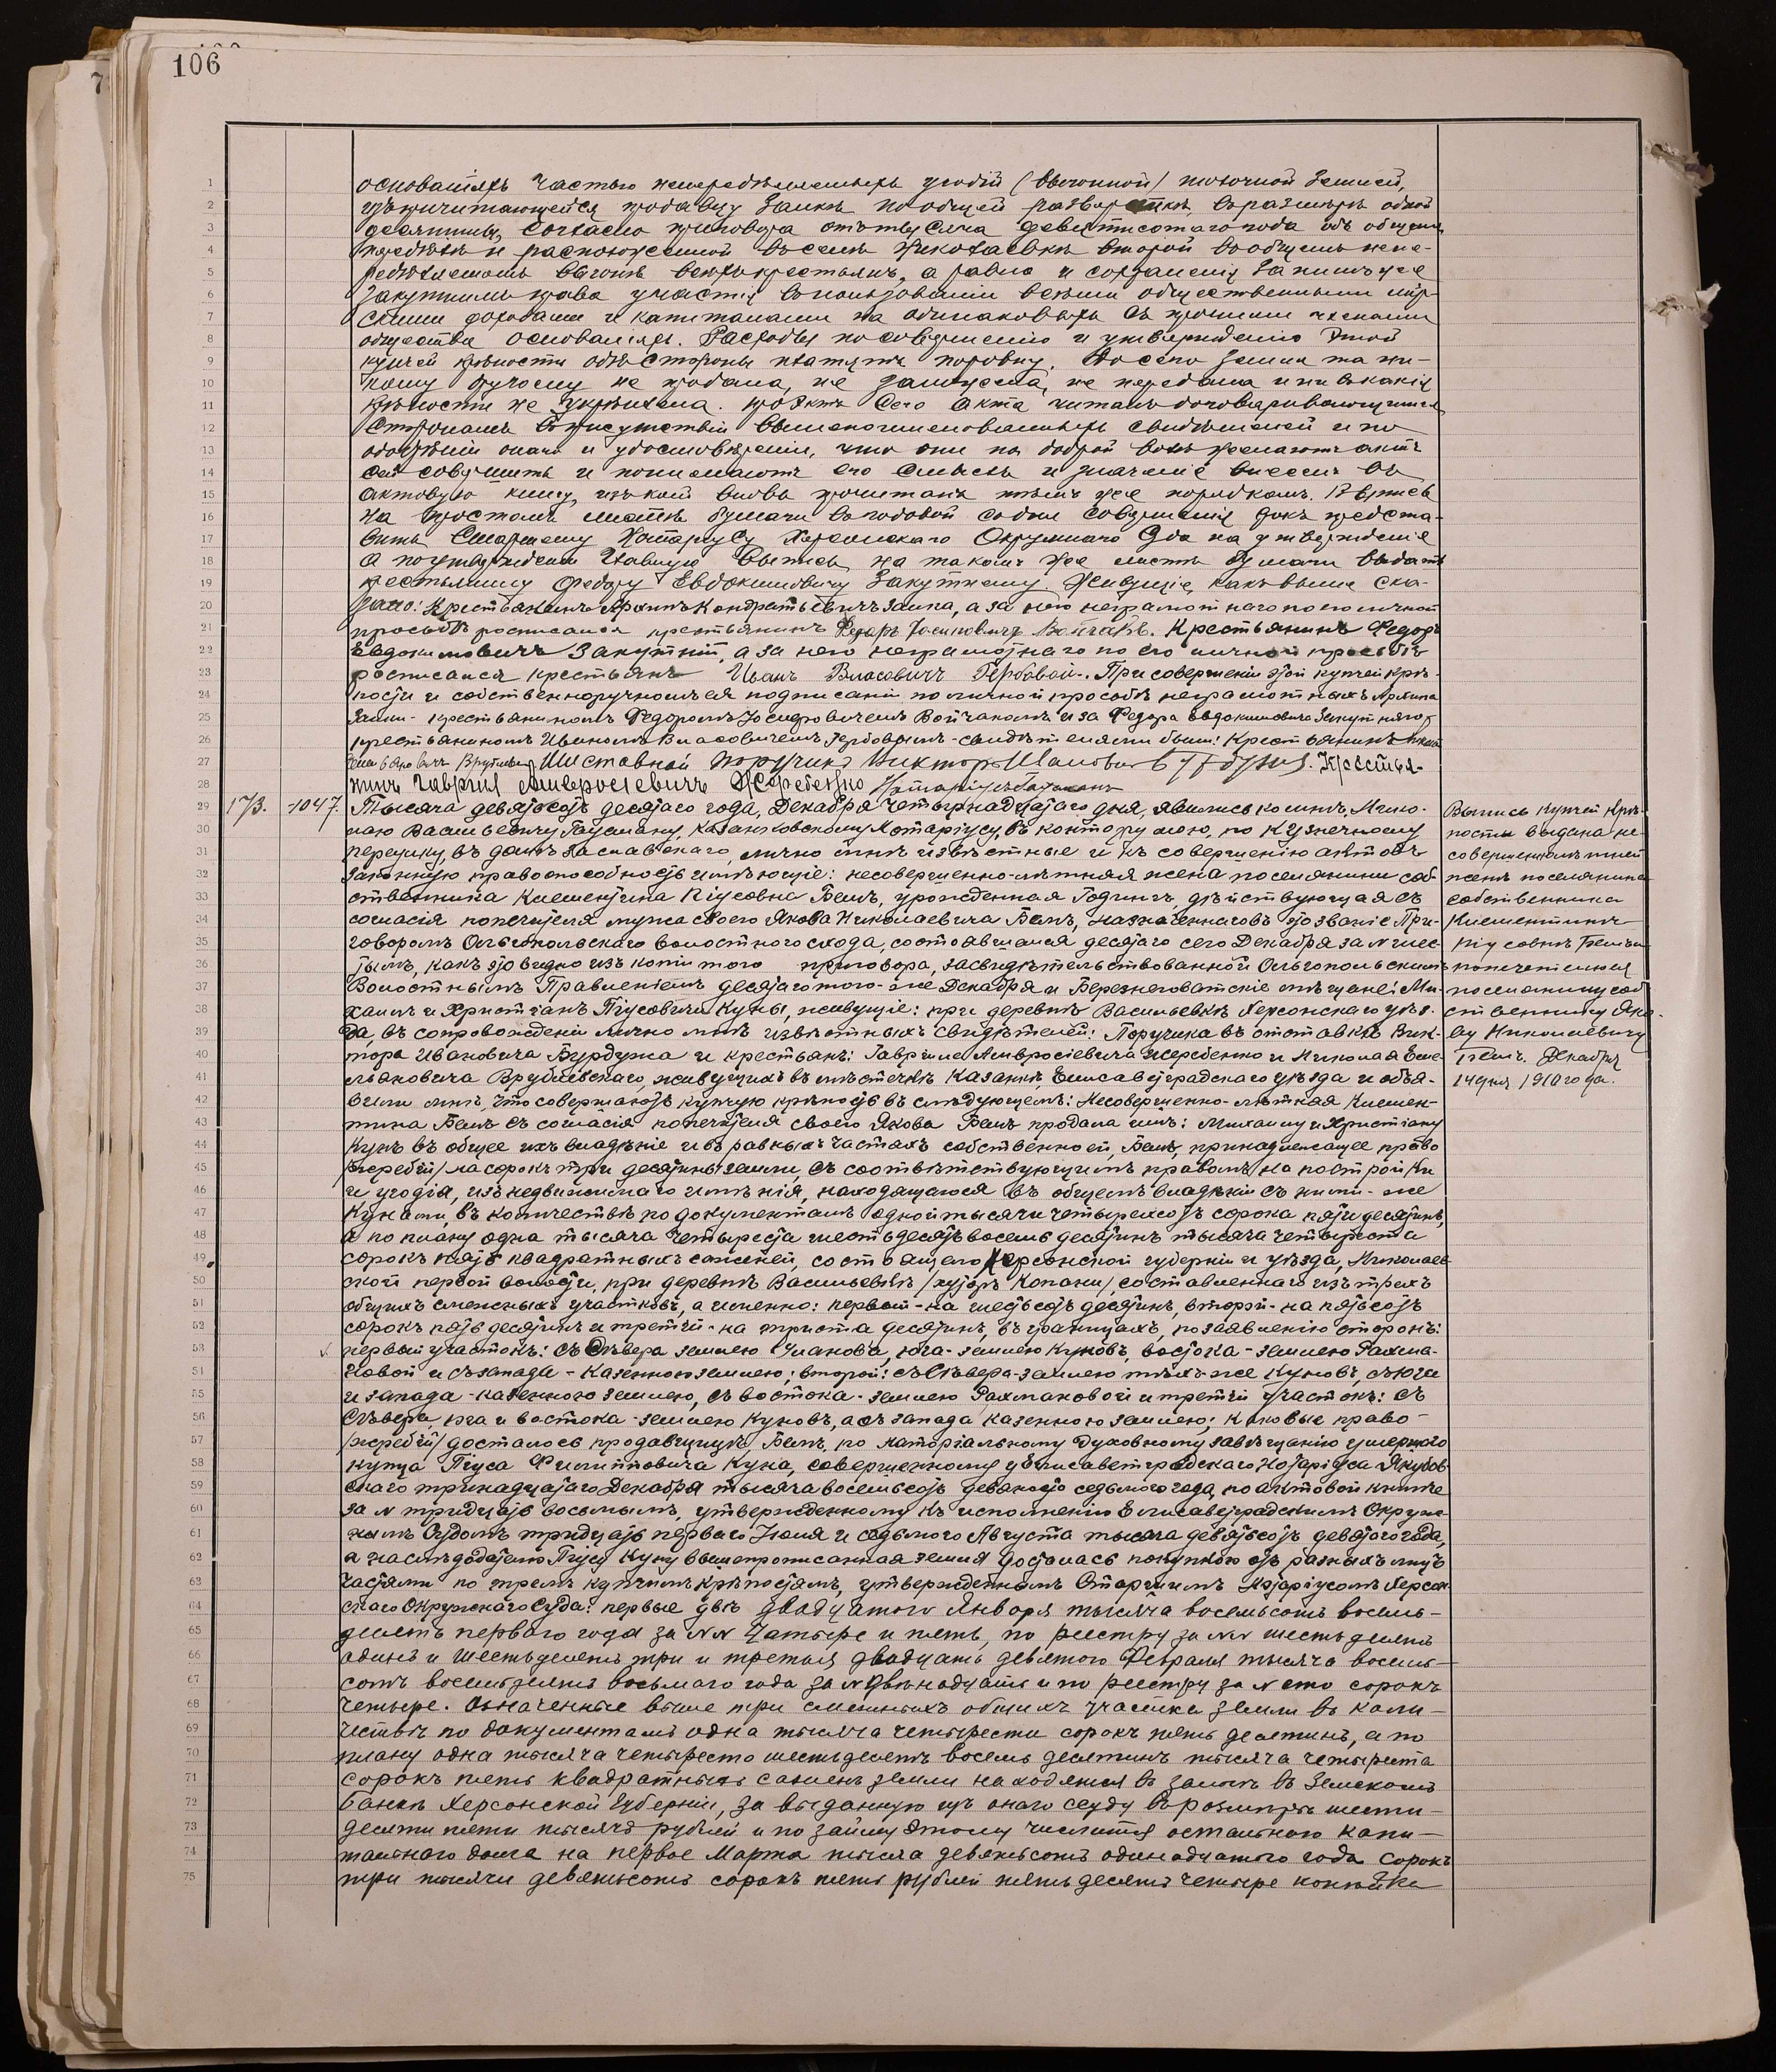 106
основаніяхъ частью непередѣляемыхъ угодій (выгонной) толочной землей,
причитающейся продавцу Заикѣ по общей развёрсткѣ, въ размѣрѣ одной
десятины, согласно приговора отъ тысяча девятисотаго года объ общемъ
передѣлѣ и расположенной въ селѣ Николаевкѣ второй въ общемъ непе-
редѣляемомъ выгонѣ всѣхъ крестьянъ, а равно и сохраненія за нимъ же
Закутнимъ права участія въ пользованіи всѣми общественными мір-
скими доходами и капиталами на одинаковыхъ съ прочими членами
общества основаніяхъ. Расходы по совершенію и утвержденію этой
купчей крѣпости обѣ стороны платятъ поровну. До сего земля та ни-
кому другому не продана, не заложена, не передана и ни въ какія
крѣпости не укрѣплена. Проэктъ сего акта читанъ договаривающимся
сторонамъ въ присутствіи вышепоименованныхъ свидѣтелей и по
одобреніи онаго и удостовѣреніи, что они по доброй волѣ желаютъ актъ
сей совершить и понимаютъ его смыслъ и значеніе внесенъ въ
актовую книгу, изъ коей вновь прочитанъ тѣмъ же порядкомъ. Выпись
на простомъ листѣ бумаги въ годовой со дня совершенія срокъ предста-
вить Старшему Нотаріусу Херсонскаго Окружнаго Суда на утвержденіе
а по утвержденіи главную выпись на такомъ же листѣ бумаги выдать
крестьянину Федору Евдокимовичу Закутнему. Живущіе, какъ выше ска-
зано: Крестьянинъ Архипъ Кондратьевичъ Заика, а за него неграмотнаго по его личной
просьбѣ росписался крестьянинъ Федоръ Іосиповичъ Войчакъ. Крестьянинъ Федоръ
Евдокимовичъ Закутній, а за него неграмотнаго по его личной просьбѣ
росписался крестьянъ Иванъ Власовичъ Гербовой. При совершеніи этой купчей крѣ-
пости и собственноручномъ ея подписаніи по личной просьбѣ неграмотныхъ Архипа
Заики - крестьяниномъ Федоромъ Іосифовичемъ Войчакомъ и за Федора Евдокимовича Закутняго,
крестьяниномъ Иваномъ Власовичемъ Гербовымъ - свидѣтелями были: Крестьянинъ
Емельяновичъ Врублевскій Поручикъ Викторъ Ивановичъ Бурдужа. Крестья-
нинъ Гаврiилъ Амвросіевичъ Жеребенко Нотаріусъ
173. 1047. Тысяча девятьсотъ десятаго года, Декабря четырнадцатаго дня, явились ко мнѣ, Нико-
лаю Васильевичу Гаусману, Казанковскому Нотаріусу, въ контору мою, по Кузнечному
переулку, въ домѣ Заславскаго, лично мнѣ извѣстные и къ совершенію актовъ
законную правоспособность имѣющіе: несовершенно-лѣтняя жена поселянина соб-
ственника Клементина Піусовна Бемъ, урожденная Годингъ, дѣйствующая съ
согласія попечителя мужа своего Якова Николаевича Бемъ, назначеннаго въ это званіе При-
говоромъ Ольгопольскаго волостного схода, состоявшемся десятаго сего Декабря за № шес-
тымъ, какъ это видно изъ копіи того приговора, засвидѣтельствованной Ольгопольскимъ
Волостнымъ Правленіемъ десятаго того-же Декабря и Березнеговатскіе мѣщане: Ми-
хаилъ и Христіанъ Піусовичи Куны, живущіе: при деревнѣ Васильевкѣ Херсонскаго уѣз-
да, въ сопровожденіи лично мнѣ извѣстныхъ свидѣтелей: Поручика въ отставкѣ Вик-
тора Ивановича Бурдужа и крестьянъ: Гавріила Амвросіевича Жеребенко и Николая Еме-
льяновича Врублевскаго, живущихъ въ мѣстечкѣ Казанкѣ, Елисаветградскаго уѣзда и объя-
вили мнѣ, что совершаютъ купчую крѣпость въ слѣдующемъ: Несовершенно-лѣтняя Клемен-
тина Бемъ съ согласія попечителя своего Якова Бемъ продала имъ: Михаилу и Христіану
Кунъ въ общее ихъ владѣніе и въ равныхъ частяхъ собственное ей, Бемъ, принадлежащее право
(жребій) на сорокъ три десятины земли, съ соотвѣтствующимъ правомъ на постройки
и угодія, изъ недвижимаго имѣнія, находящагося въ общемъ владѣніи съ ними-же
Кунами, въ количествѣ по документамъ одной тысячи четырехсотъ сорока пяти десятинъ,
а по плану одна тысяча четыреста шестьдесятъ восемь десятинъ тысяча четыреста
сорокъ пять квадратныхъ саженей, состоящаго Херсонской губерніи и уѣзда, Николаев-
ской первой волости, при деревнѣ Васильевкѣ (хуторъ Копани), составленнаго изъ трехъ
общихъ смежныхъ участковъ, а именно: первый - на шестьсотъ десятинъ, второй - на пятьсотъ
сорокъ пять десятинъ и третій - на триста десятинъ, въ границахъ, по заявленію сторонъ:
первый участокъ: съ Сѣвера землею Уланова, юга - землею Куновъ, востока - землею Рахма-
новой и съ запада - Казенною землею; второй: съ Сѣвера - землею тѣхъ-же Куновъ, съ юга
и запада - казенною землею, съ востока - землею Рахмановой и третій участокъ: съ
Сѣвера, юга и востока - землею Куновъ, а съ запада казенною землею; каковые право -
(жребій) досталось продавщицѣ, Бемъ, по нотаріальному духовному завѣщанію умершаго
купца Піуса Филипповича Куна, совершенному у Елисаветградскаго Нотаріуса Якубов-
скаго тринадцатаго Декабря тысяча восемьсотъ девяносто седьмого года, по актовой книгѣ
за № тридцать восьмымъ, утвержденному къ исполненію Елисаветградскимъ Окруж-
нымъ Судомъ тридцать перваго Іюля и седьмого Августа тысяча девятьсотъ девятаго года,
а наслѣдодателю Піусу Куну вышепрописанная земля досталась покупкою отъ разныхъ лицъ
частями по тремъ купчимъ крѣпостямъ, утвержденнымъ Старшимъ Нотаріусомъ Херсон-
скаго Окружнаго Суда: первые двѣ двадцатаго Января тысяча восемьсотъ восемь-
десятъ перваго года за №№ четыре и пять, по реестру за №№ шестьдесятъ
одинъ и шестьдесятъ три и третья двадцать девятаго Февраля тысяча восемь-
сотъ восемьдесятъ восьмаго года за № двѣнадцать и по реестру за № сто сорокъ
четыре. Означенные выше три смежныхъ общихъ участка земли въ коли-
чествѣ по документамъ одна тысяча четыреста сорокъ пять десятинъ, а по
плану одна тысяча четыреста шестьдесятъ восемь десятинъ тысяча четыреста
сорокъ пять квадратныхъ саженъ земли находятся въ залогѣ въ Земскомъ
Банкѣ Херсонской Губерніи, за выданную изъ онаго ссуду въ размѣрѣ шести-
десяти пяти тысячъ рублей и по займу этому числится остального капи-
тальнаго долга на первое Марта тысяча девятьсотъ одинадцатаго года сорокъ
три тысячи девятьсотъ сорокъ пять рублей пятьдесятъ четыре копѣйки
Выпись купчей крѣ-
пости выдана не-
совершеннолѣтней
женѣ поселянина
собственника
Клементинѣ
Піусовнѣ Бемъ и
попечителю ея
поселянину соб-
ственнику Яко-
ву Николаевичу
Бемъ. Декабря
14 дня 1910 года.